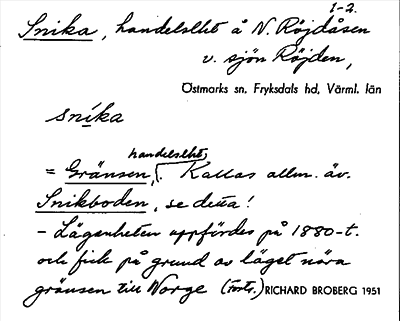 1-2.
Snika, handelslht å N. Röjdåsen
v. sjön Röjden,
Östmarks sn, Fryksdals hd, Värml. län
snika
handelslht,
= Gränsen, Kallas allm. äv.
Snikboden, se detta!
- Lägenheten uppfördes på 1880-t.
och fick på grund av läget nära
gränsen till Norge (Forts.) RICHARD BROBERG 1951